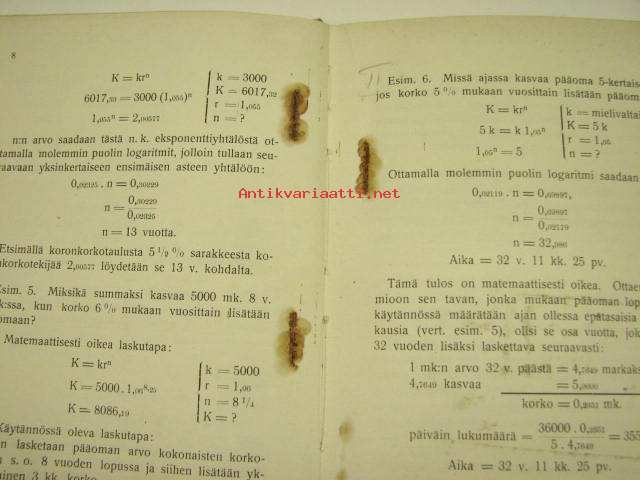 8
K = krⁿ
6017,₃₃ = 3000 (1,₀₅₅)ⁿ
1,₀₅₅ⁿ = 2,₀₀₅₇₇
k = 3000
K = 6017,₃₂
r = 1,₀₅₅
n = ?
n:n arvo saadaan tästä n. k. eksponenttiyhtälöstä ot-
tamalla molemmin puolin logaritmit, jolloin tullaan seu-
raavaan yksinkertaiseen ensimäisen asteen yhtälöön:
0,₀₂₃₂₅ . n = 0,₃₀₂₂₉
n = 0,₃₀₂₂₉ / 0,₀₂₃₂₅
n = 13 vuotta.
Etsimällä koronkorkotaulusta 5 ¹/₂ % sarakkeesta ko-
nkorkotekijää 2,₀₀₅₇₇ löydetään se 13 v. kohdalta.
Esim. 5. Miksikä summaksi kasvaa 5000 mk. 8 v.
k:ssa, kun korko 6 % mukaan vuosittain lisätään
omaan?
Matemaattisesti oikea laskutapa:
K = krⁿ
K = 5000 . 1,₀₆⁸·²⁵
K = 8086,₁₉
k = 5000
r = 1,₀₆
n = 8 ¹/₄
K = ?
Käytännössä oleva laskutapa:
n lasketaan pääoman arvo kokonaisten korko-
n s. o. 8 vuoden lopussa ja siihen lisätään yk-
inen 3 kk. korko
Antikvariaatti.net
Esim. 6. Missä ajassa kasvaa pääoma 5-kertais
jos korko 5 % mukaan vuosittain lisätään pääom
K = krⁿ
5 k = k 1,₀₅ⁿ
1,₀₅ⁿ = 5
k = mielivaltai
K = 5 k
r = 1,₀₅
n = ?
Ottamalla molemmin puolin logaritmi saadaan
0,₀₂₁₁₉ . n = 0,₆₉₈₉₇,
n = 0,₆₉₈₉₇ / 0,₀₂₁₁₉
n = 32,₉₈₆
Aika = 32 v. 11 kk. 25 pv.
Tämä tulos on matemaattisesti oikea. Ottae
mioon sen tavan, jonka mukaan pääoman lop
käytännössä määrätään ajan ollessa epätasaisia
kausia (vert. esim. 5), olisi se osa vuotta, jok
32 vuoden lisäksi laskettava seuraavasti:
1 mk:n arvo 32 v. päästä = 4,₇₆₄₉ markaks
4,₇₆₄₉ kasvaa = 5,₀₀₀₀
korko = 0,₂₃₅₁ mk.
päiväin lukumäärä = 36000 . 0,₂₃₅₁ / 5 . 4,₇₆₄₉ = 355
Aika = 32 v. 11 kk. 25 pv.